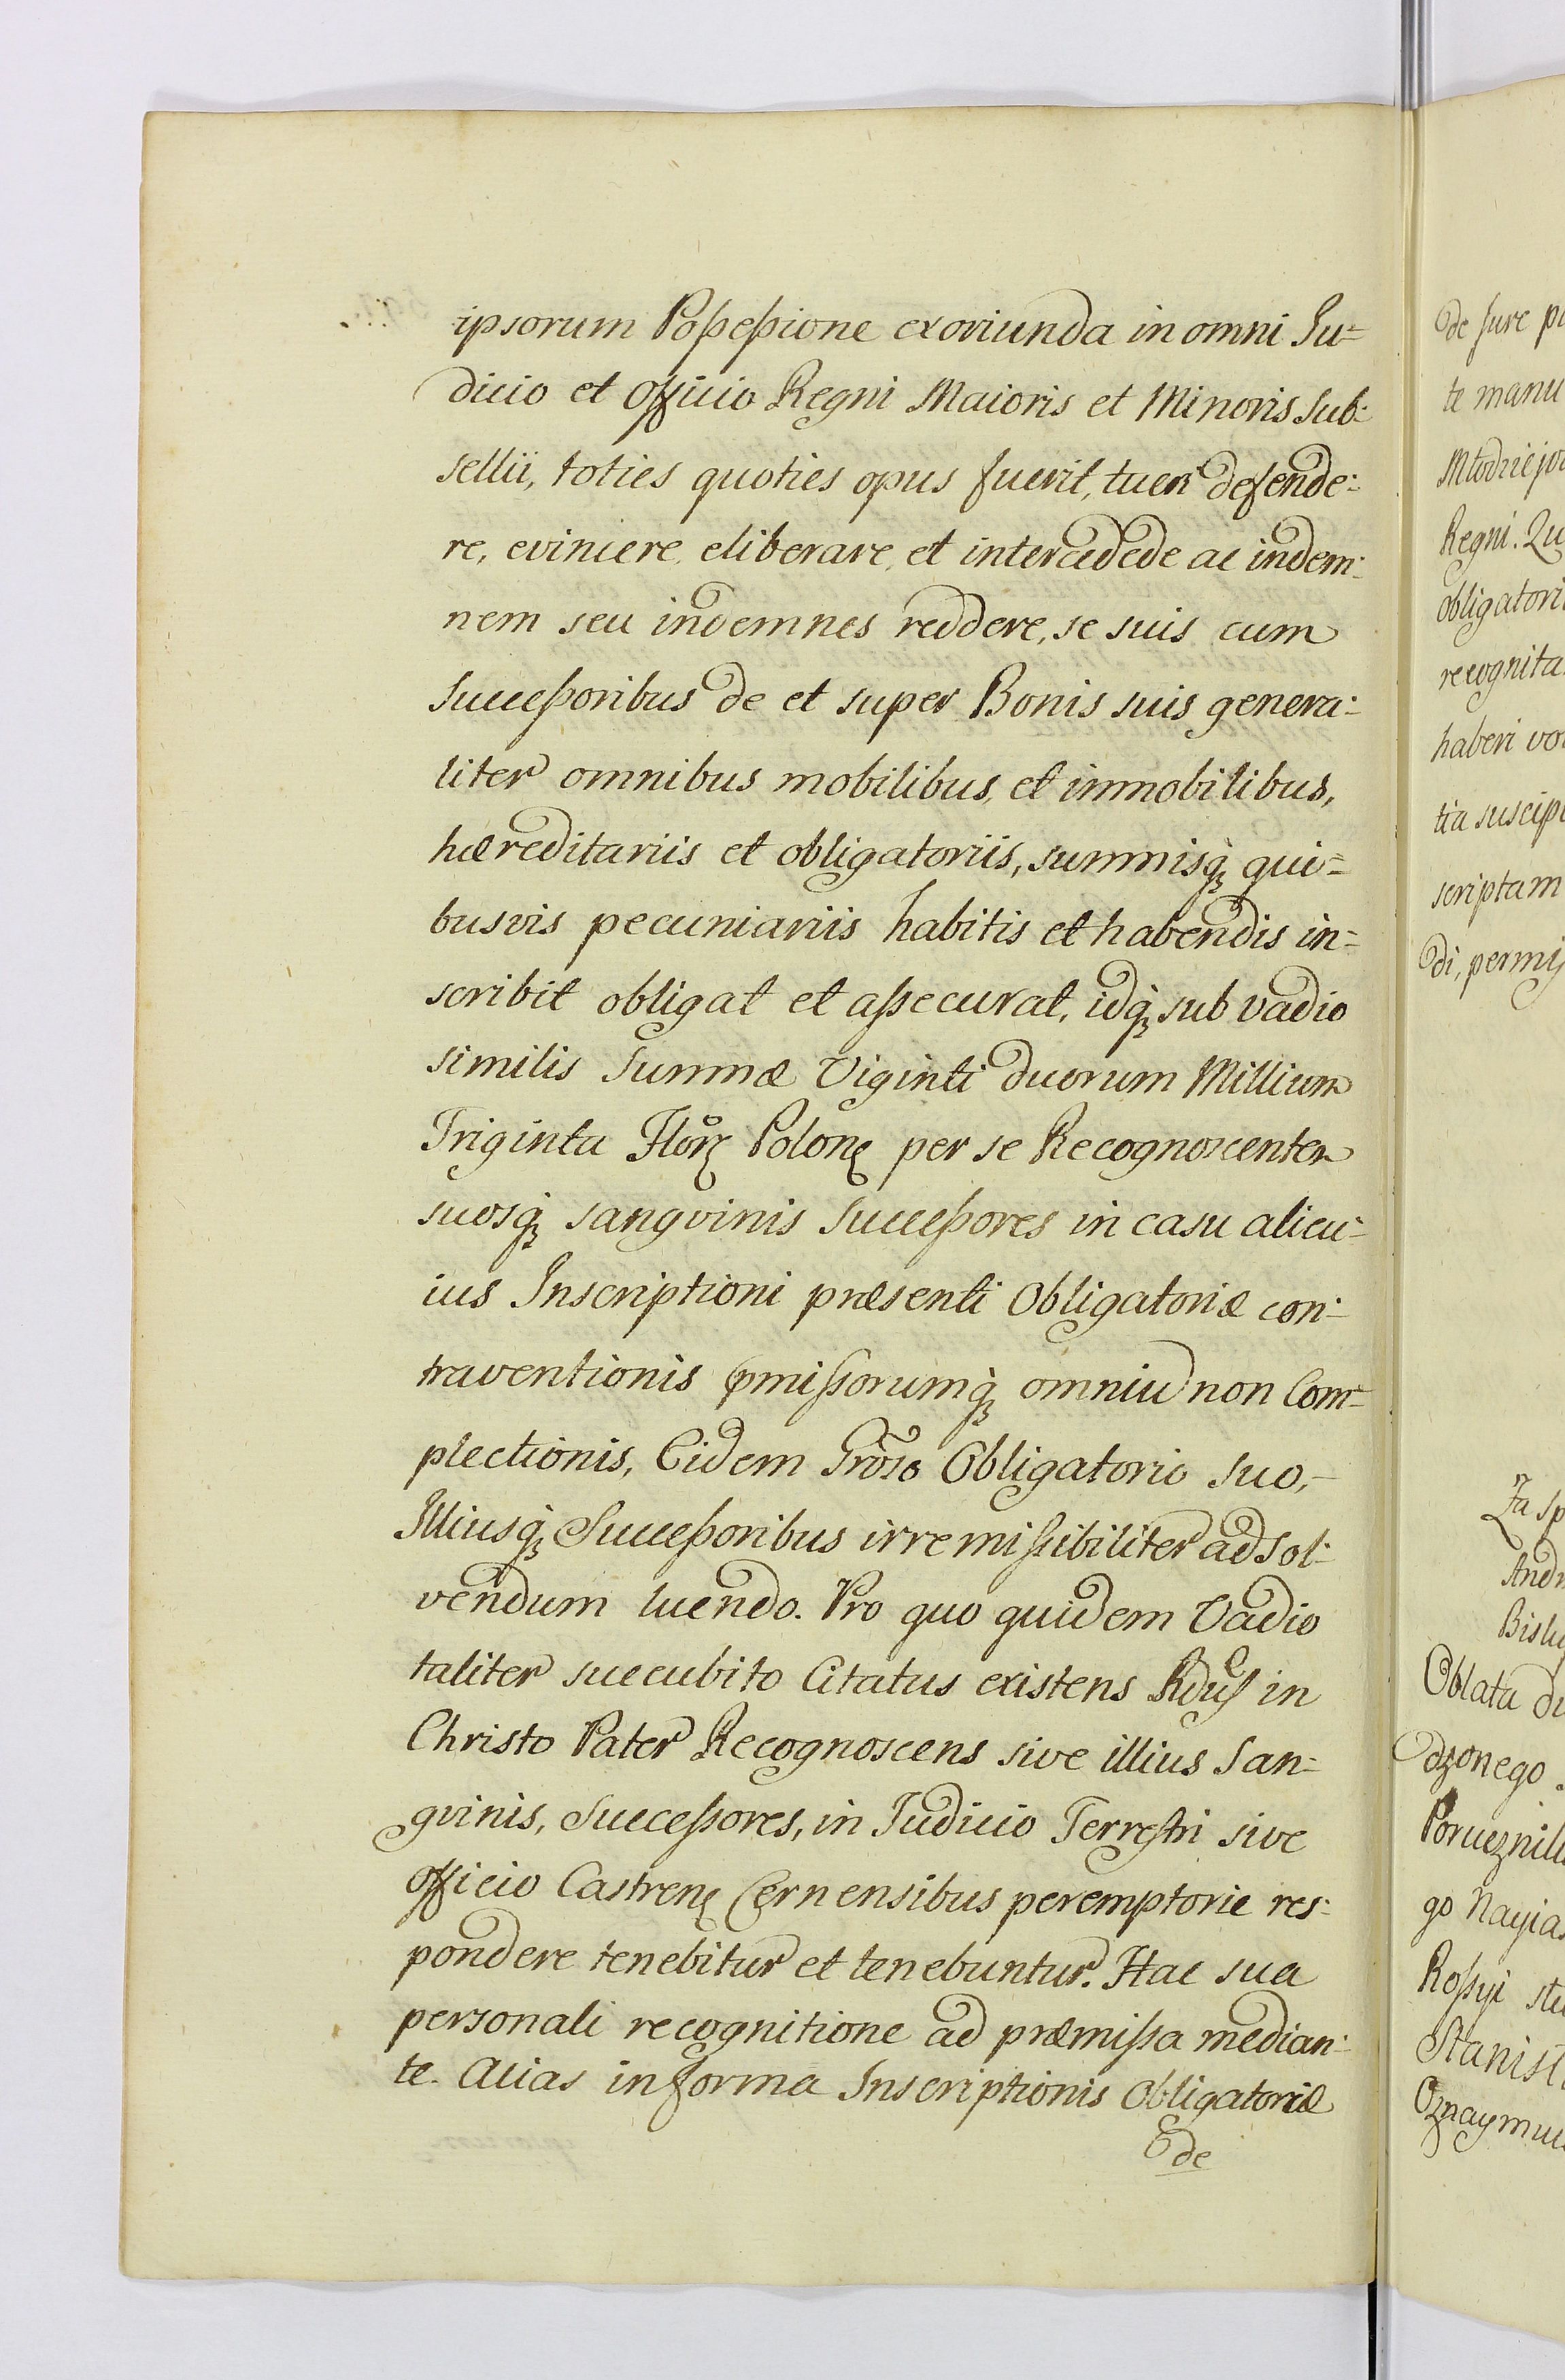 ipsorum Poßeßione exoriunda in omni Iu=
dicio et Officio Regni Maioris et Minoris Sub=
sellii, toties quoties opus fuerit, tueri defende=
re, evincere, eliberare, et intercedede ac indem=
nem seu indemnes reddere, se suis cum
Succeßoribus de et super Bonis suis genera=
liter omnibus mobilibus, et immobilibus,
hæreditariis et obligatoriis, summisq, qui=
busvis pecuniariis habitis et habendis in=
scribit obligat et aßecurat, idq, sub vadio
similis Summæ Viginti duorum Millium
Triginta Flor Polon per se Recognoscentem
suosq, sangvinis Succeßores in casu alicu=
ius Inscriptioni præsenti Obligatoriæ con=
traventionis pmißorumq, omniu non Com=
plectionis, Eidem Groso Obligatorio suo,
Illiusq, Succeßoribus irremißibiliter ad sol=
vendum luendo. Pro quo quidem Vadio
taliter succubito Citatus existens Rdus in
Christo Pater Recognoscens sive illius San=
gvinis, Succeßores, in Iudicio Terrestri sive
Officio Castren Cernensibus peremptorie res=
pondere tenebitur et tenebuntur. Hac sua
personali recognitione ad præmißa median=
te. Alias in forma Inscriptionis Obligatoriæ
de
de Iure
te manu
Regni.
recognita
haberi
scriptam
di,
Za
Oblata
dzonego
go
Roßyi